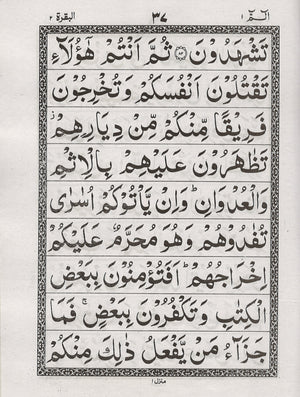 الٓمّٓ ١ ٣٧ البقرة ٢
تَشْهَدُوْنَ ۝٨٤ ثُمَّ اَنْتُمْ هٰٓؤُلَآءِ
تَقْتُلُوْنَ اَنْفُسَكُمْ وَتُخْرِجُوْنَ
فَرِيْقًا مِّنْكُمْ مِّنْ دِيَارِهِمْ ز
تَظٰهَرُوْنَ عَلَيْهِمْ بِالْاِثْمِ
وَالْعُدْوَانِ ؕ وَاِنْ يَّاْتُوْكُمْ اُسٰرٰى
تُفٰدُوْهُمْ وَهُوَ مُحَرَّمٌ عَلَيْكُمْ
اِخْرَاجُهُمْ ؕ اَفَتُؤْمِنُوْنَ بِبَعْضِ
الْكِتٰبِ وَتَكْفُرُوْنَ بِبَعْضٍ ۚ فَمَا
جَزَآءُ مَنْ يَّفْعَلُ ذٰلِكَ مِنْكُمْ
منزل ١